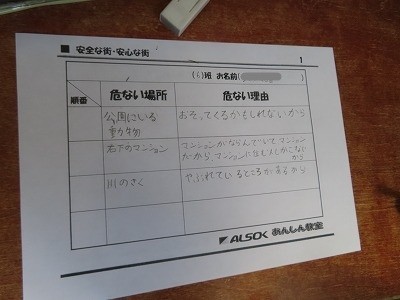 ■ 安全な街・安心な街
1
(6)班 お名前( )
順番 危ない場所 危ない理由
公園にいる
動物
おそってくるかもしれないから
右下のマンション
マンションがならんでいてマンション
だから、マンションに住む人しかこないから
川のさく
やぶれているところがあるから
ALSOK あんしん教室